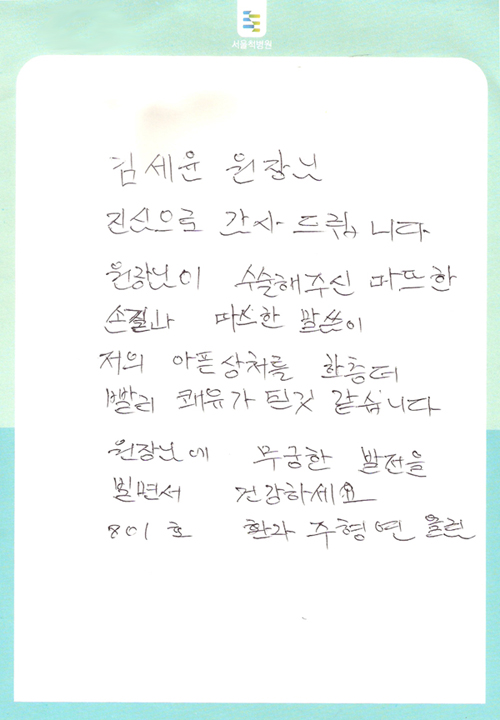 서울척병원
김세윤 원장님
진심으로 감사 드립니다
원장님이 수술해주신 따뜨한
손길과 따스한 말씀이
저의 아픈상처를 화층더
빨리 쾌유가 된것 같습니다
원장님에 무궁한 발전을
빌면서 건강하세요
801호 환자 주형연 올림